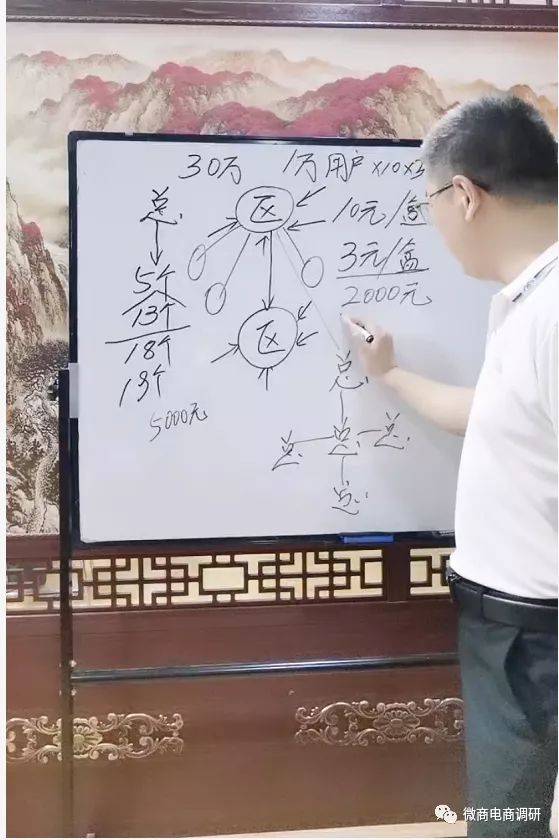 30万 1万用户×10×3
总
区
10元/盒
3元/盒
2000元
5个
13个
18个
13个
5000元
区
总
总 总 总
总
微商电商调研